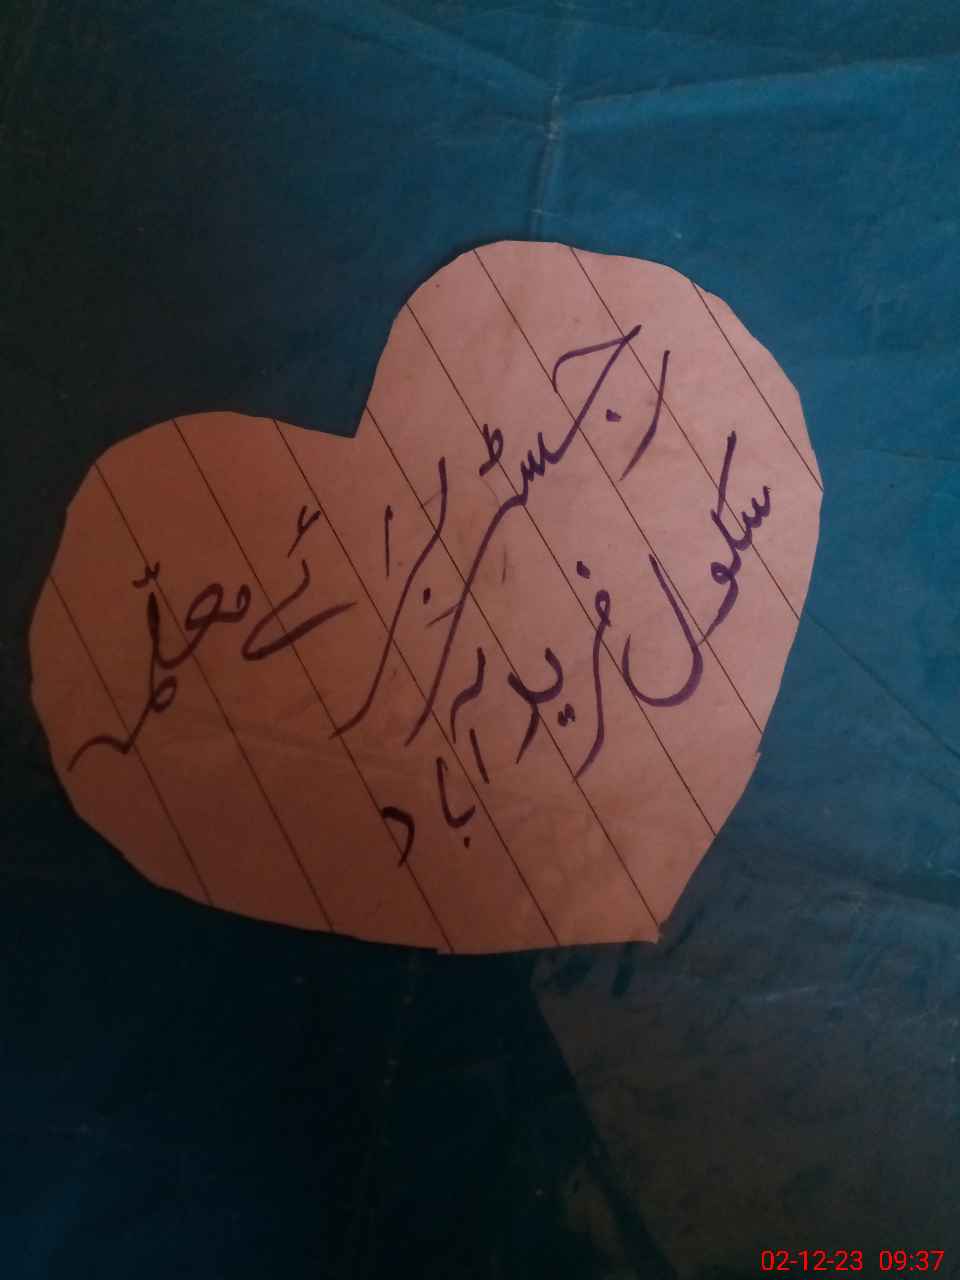 رجسٹر برائے معلمہ
سکول فرید آباد
02-12-23 09:37